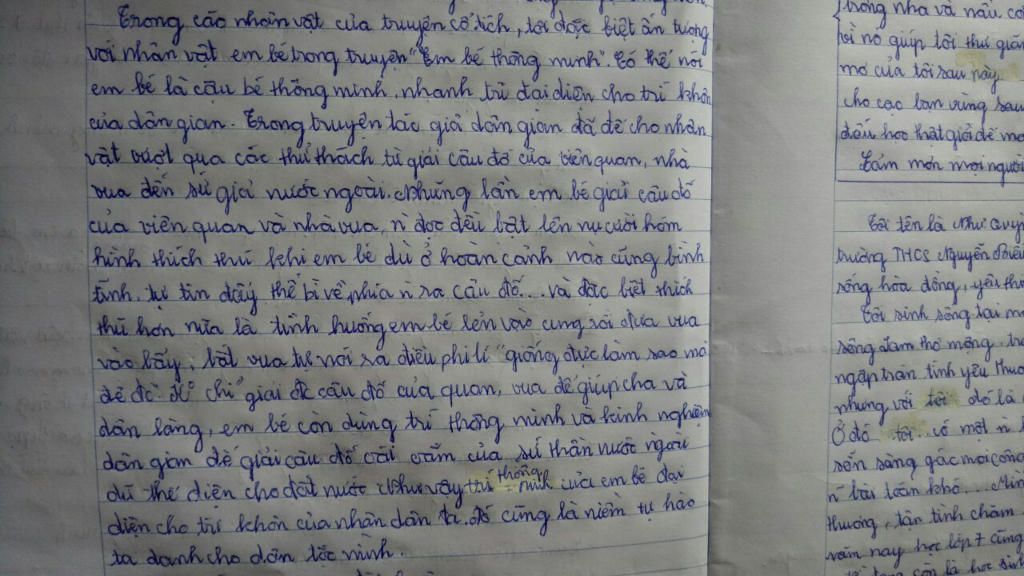 Trong các nhân vật của truyện cổ tích, tôi đặc biệt ấn tượng
với nhân vật em bé trong truyện "Em bé thông minh". Có thể nói
em bé là cậu bé thông minh, nhanh trí đại diện cho trí khôn
của dân gian. Trong truyện tác giả dân gian đã để cho nhân
vật vượt qua các thử thách từ giải câu đố của viên quan, nhà
vua đến sứ giả nước ngoài. Những lần em bé giải câu đố
của viên quan và nhà vua, n đọc đều bật lên nụ cười hóm
hỉnh thích thú khi em bé dù ở hoàn cảnh nào cũng bình
tĩnh, tự tin đẩy thế bí về phía n ra câu đố... và đặc biệt thích
thú hơn nữa là tình huống em bé lẻn vào cung rồi đưa vua
vào bẫy, bắt vua tự nói ra điều phi lí "giống đực làm sao mà
đẻ đc". chỉ giải đc câu đố của quan, vua để giúp cha và
dân làng, em bé còn dùng trí thông minh và kinh nghiệm
dân gian để giải câu đố của sứ thần nước ngoài
thể diện cho đất nước. Như vậy trí thông minh của em bé đại
diện cho trí khôn của nhân dân ta. đó cũng là niềm tự hào
ta danh cho dân tộc mình.
trong nhà và nấu
vì nó giúp tôi thư giãn
mơ của tôi sau này
cho các bạn vùng sau
học thật giỏi để
Cảm mơn mọi người
Tôi tên là Như
trường THCS Nguyễn
sống hòa đồng, yêu
Tôi sinh sống tại
sông đam thơ mộng,
ngập tràn tình yêu thươ
nhưng với tôi đó là
Ở đó tôi.. có một n
sẵn sàng gác mọi công
n bài toán khó...
thương, tận tình chăm
năm nay học lớp 7 cũng
còn là học sinh